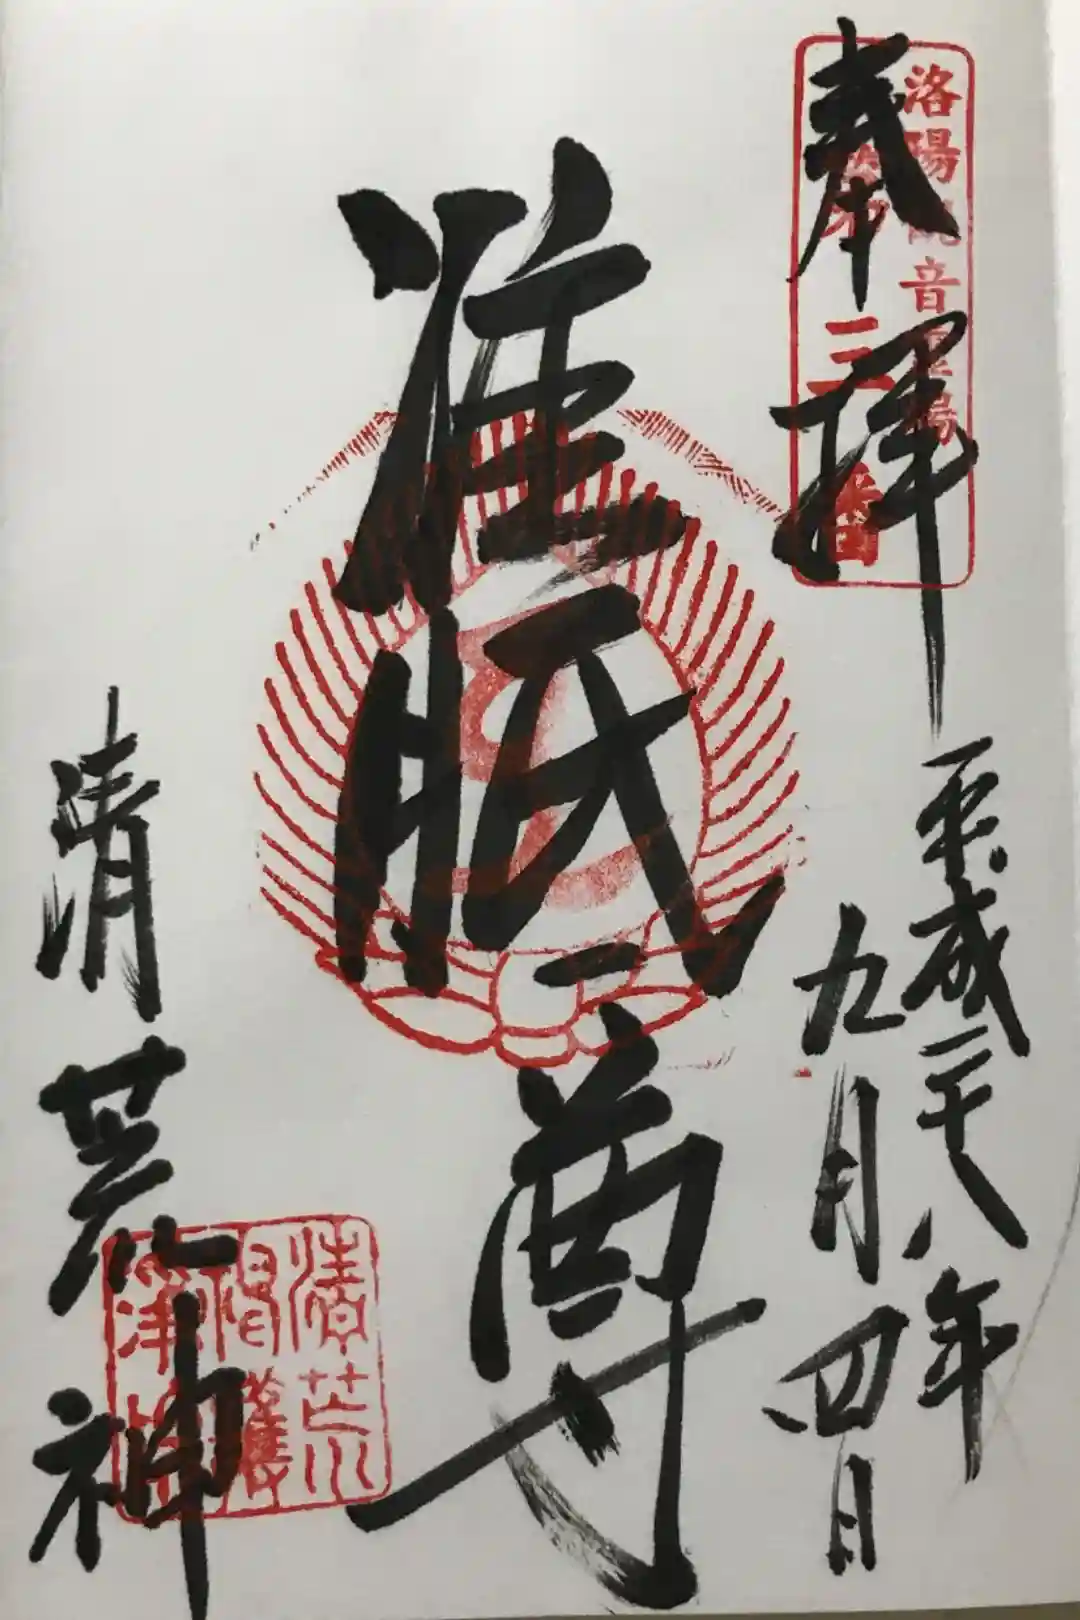 奉拝
洛陽観音霊場
第三番
平成二十八年
九月四日
准胝尊
清荒神
清荒
護
浄